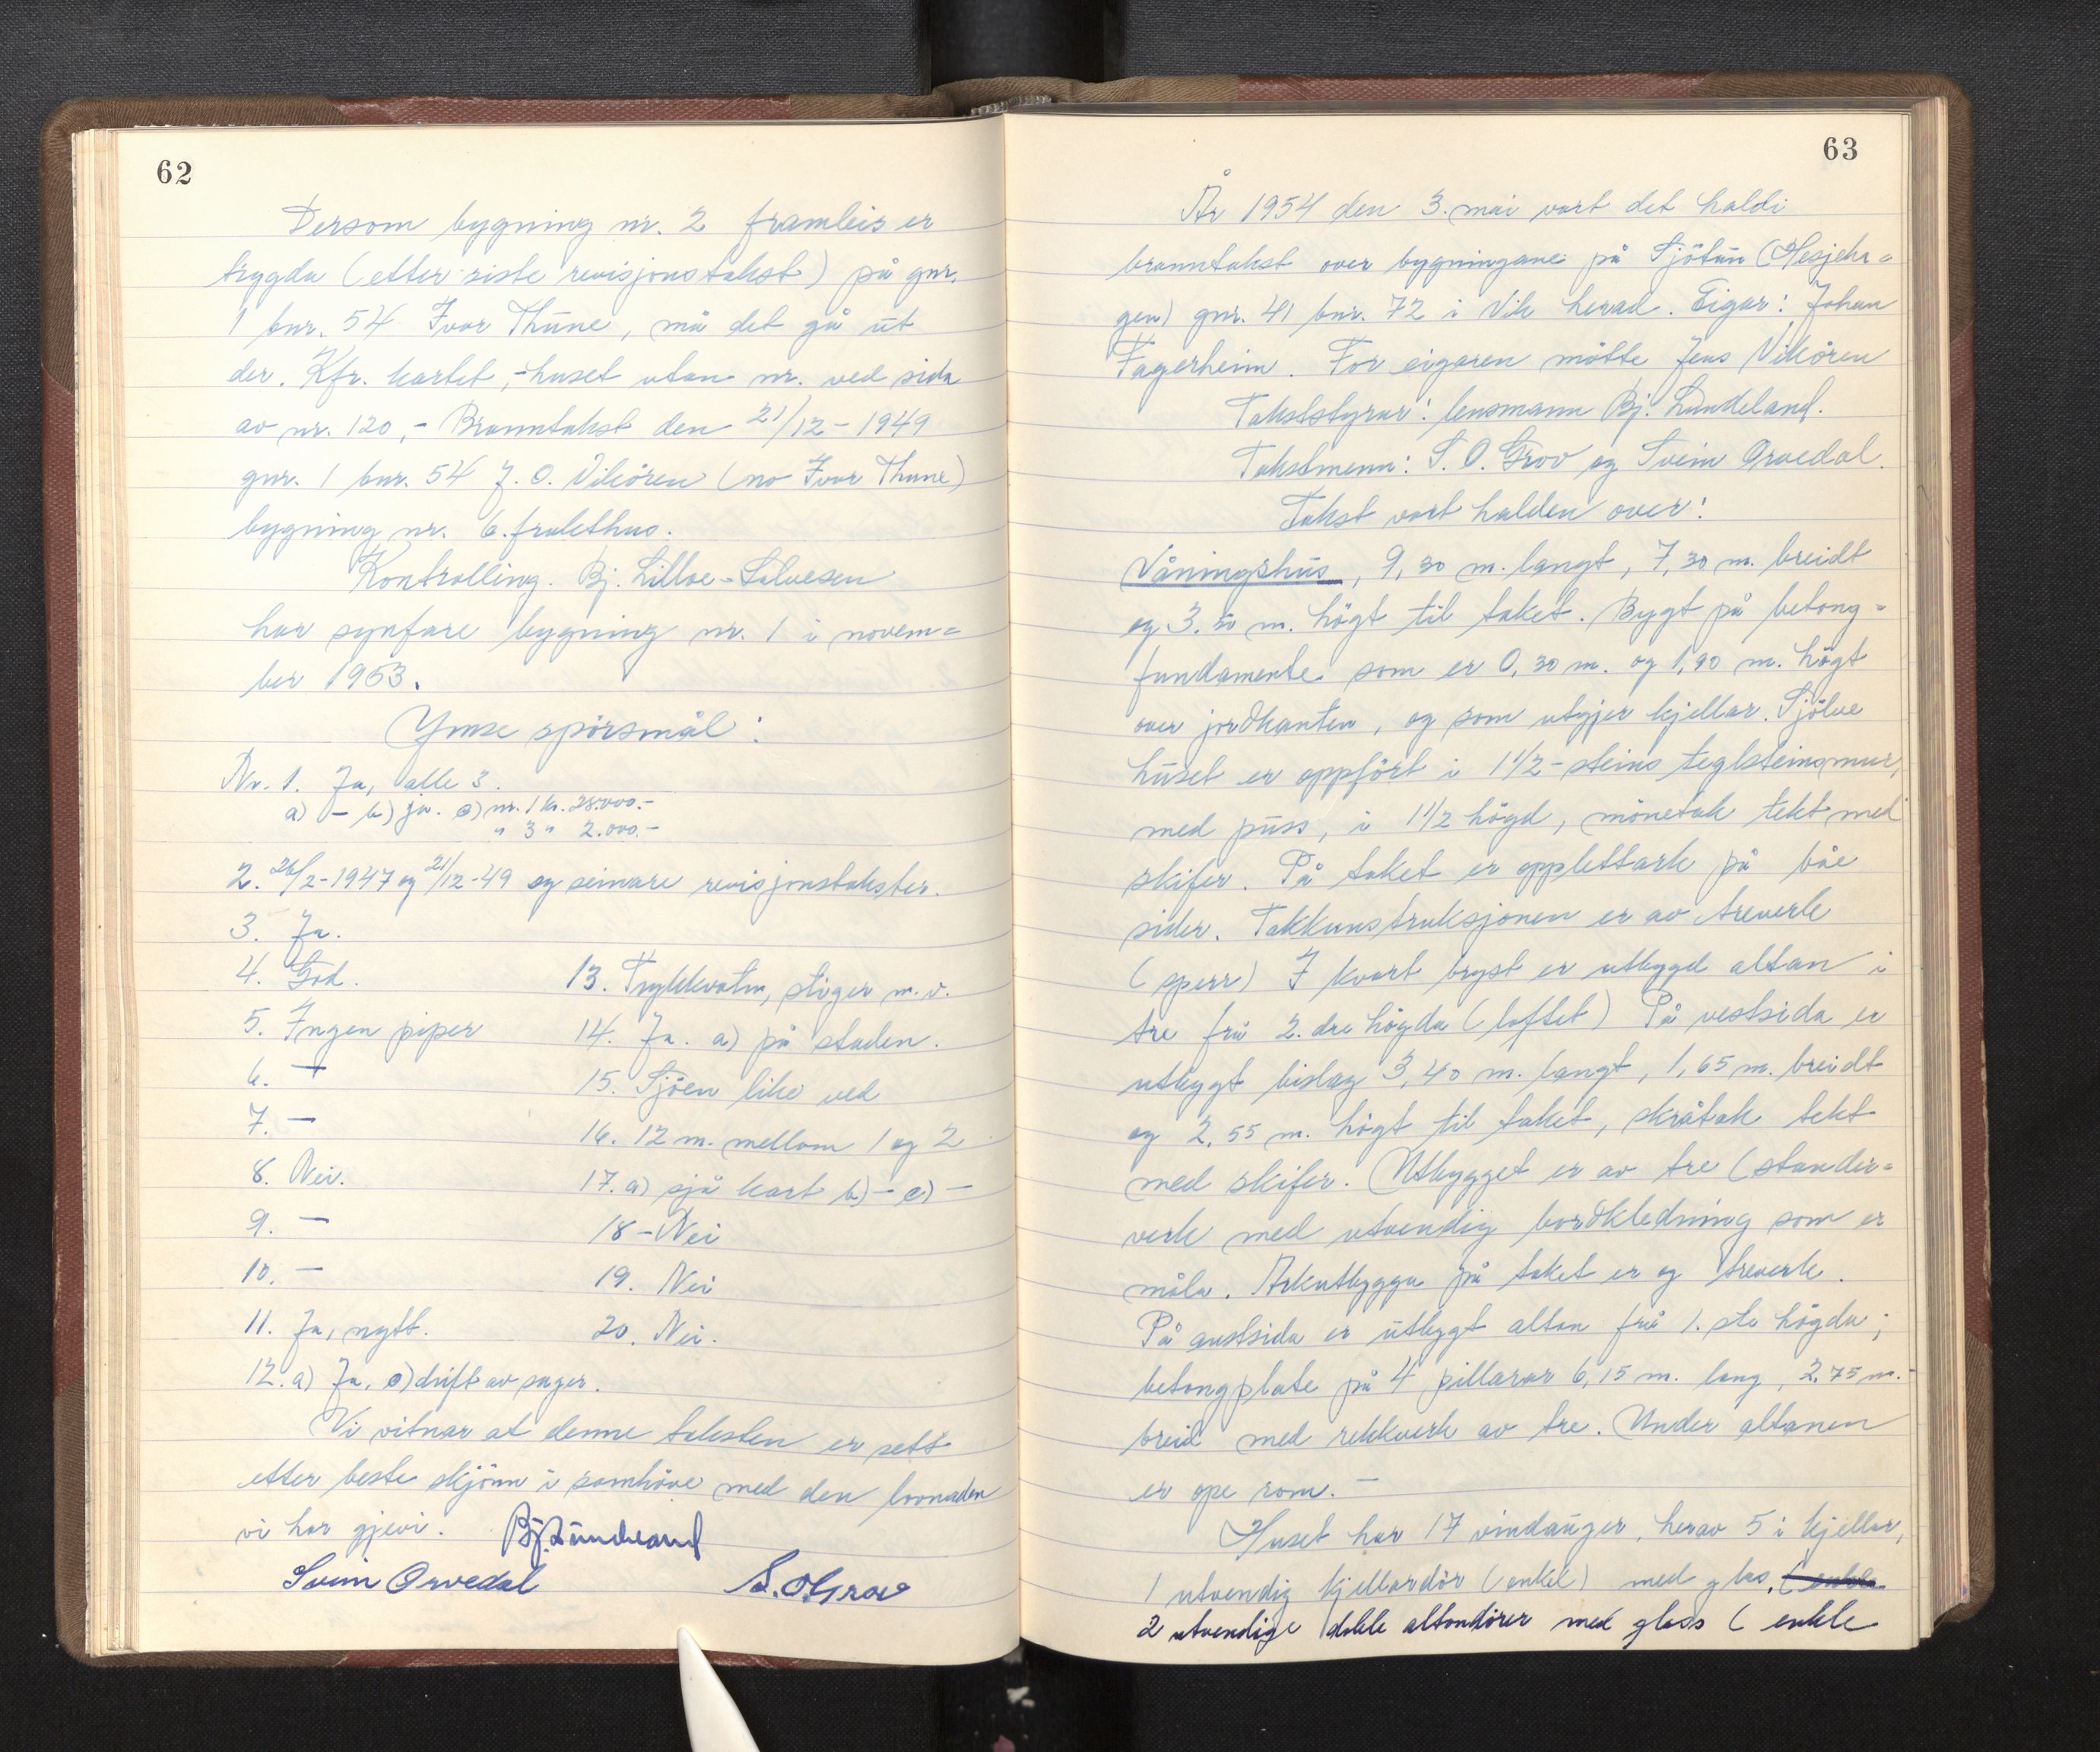 62
Dersom bygning nr. 2 framleis er
trygda (etter siste revisjonstakst) på gnr.
1 bnr. 54 Ivar Thune, må det gå ut
der. Kfr. kartet, - huset utan nr. ved sida
av nr. 120, - Branntakst den 21/12 - 1949
gnr. 1 bnr. 54 J. O. Vikören (no Ivar Thune)
bygning nr. 6. frukthus.
Kontrolling. Bj. Lilloe-Salvesen
har synfare bygning nr. 1 i novem=
ber 1953.
Ymse spörsmål:
Nr. 1. Ja, alle 3.
a) - b) ja. c) nr. 1 kr. 28.000.-
" 3 " 2.000.-
2. 26/2-1947 og 21/12-49 og seinare revisjonstakster.
3. Ja.
4. God.
5. Ingen piper
6. -
7. -
8. Nei.
9. -
10. -
11. Ja, nytt.
12. a) Ja, c) drift av sager.
13. Trykkvatn, stiger m.v.
14. Ja. a) på staden.
15. Sjöen like ved
16. 12 m. mellom 1 og 2
17. a) sjå kart b) - c) -
18 - Nei
19. Nei
20. Nei.
Vi vitnar at denne taksten er sett
etter beste skjönn i samhöve med den lovnaden
vi har gjevi. Bj. Lundeland
Svein Orvedal S. O. Grov
63
År 1954 den 3. mai vart det haldi
branntakst over bygningane på Sjötun (Hesjeha=
gen) gnr. 41 bnr. 72 i Vik herad. Eigar: Johan
Fagerheim. For eigaren mötte Jens Vikören
Takststyrar: lensmann Bj. Lundeland.
Takstmenn: S. O. Grov og Svein Orvedal.
Takst vart halden over:
Våningshus, 9,30 m. langt, 7,30 m. breidt
og 3.50 m. högt til taket. Bygt på betong=
fundamente som er 0,30 m. og 1,90 m. högt
over jordkanten, og som utgjer kjellar. Sjölve
huset er oppfört i 1 1/2 - steins teglsteinsmur,
med puss, i 1 1/2 högd, mönetak tekt med
skifer. På taket er opplettark på båe
sider. Takkunstruksjonen er av treverk
(sperr) I kvart bryst er utbygd altan i
tre frå 2. dre högda (loftet) På vestsida er
utbygt bislag 3,40 m. langt, 1,65 m. breidt
og 2,55 m. högt til taket, skråtak tekt
med skifer. Utbygget er av tre (stander=
verk med utvendig bordkledning som er
måla. Arkutbygga på taket er og treverk.
På austsida er utbygt altan frå 1. ste högda;
betongplate på 4 pillarar 6,15 m. lang, 2,75 m.
breid med rekkverk av tre. Under altanen
er ope rom. -
Huset har 17 vindauger, herav 5 i kjellar,
1 utvendig kjellardör (enkel) med glas, (enkle
2 utvendige doble altandörer med glass (enkle